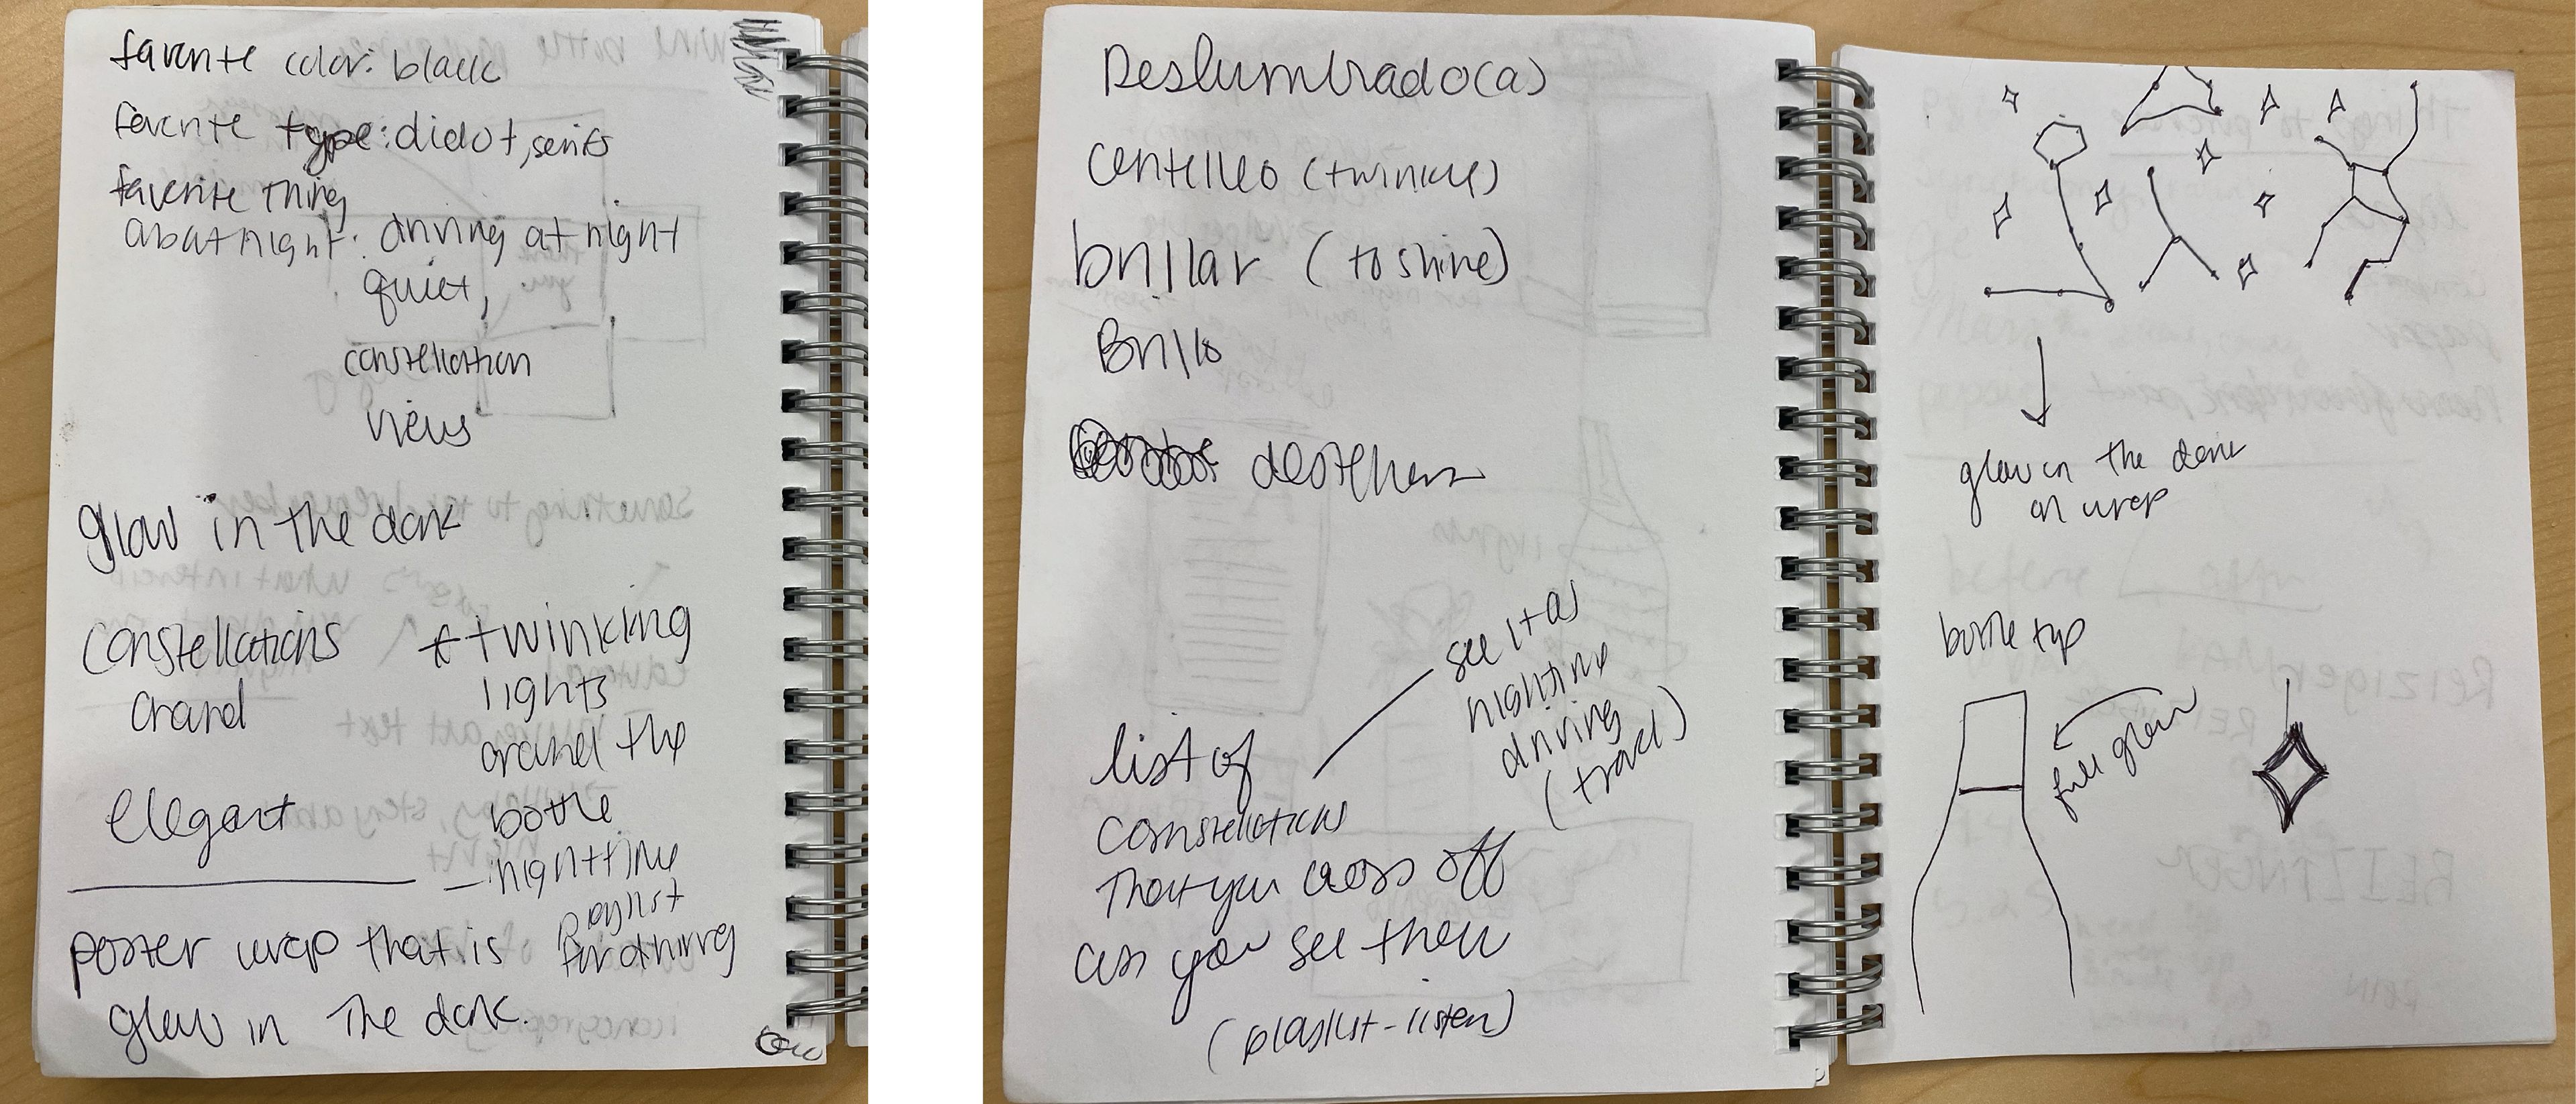 favorite color: black
favorite type: didot, serifs
favorite thing
about night: driving at night
quiet,
constellation
views
glow in the dark
constellations
around
elegant
twinkling
lights
around the
bottle
- nighttime
playlist
for driving
poster wrap that is
glow in the dark.
Deslumbrado(a)
centelleo (twinkle)
brillar (to shine)
Brillo
list of
constellations
that you cross off
as you see them
(playlist - listen)
see it as
nighttime
driving
(travel)
glow in the dark
on wrap
bottle top
full glow